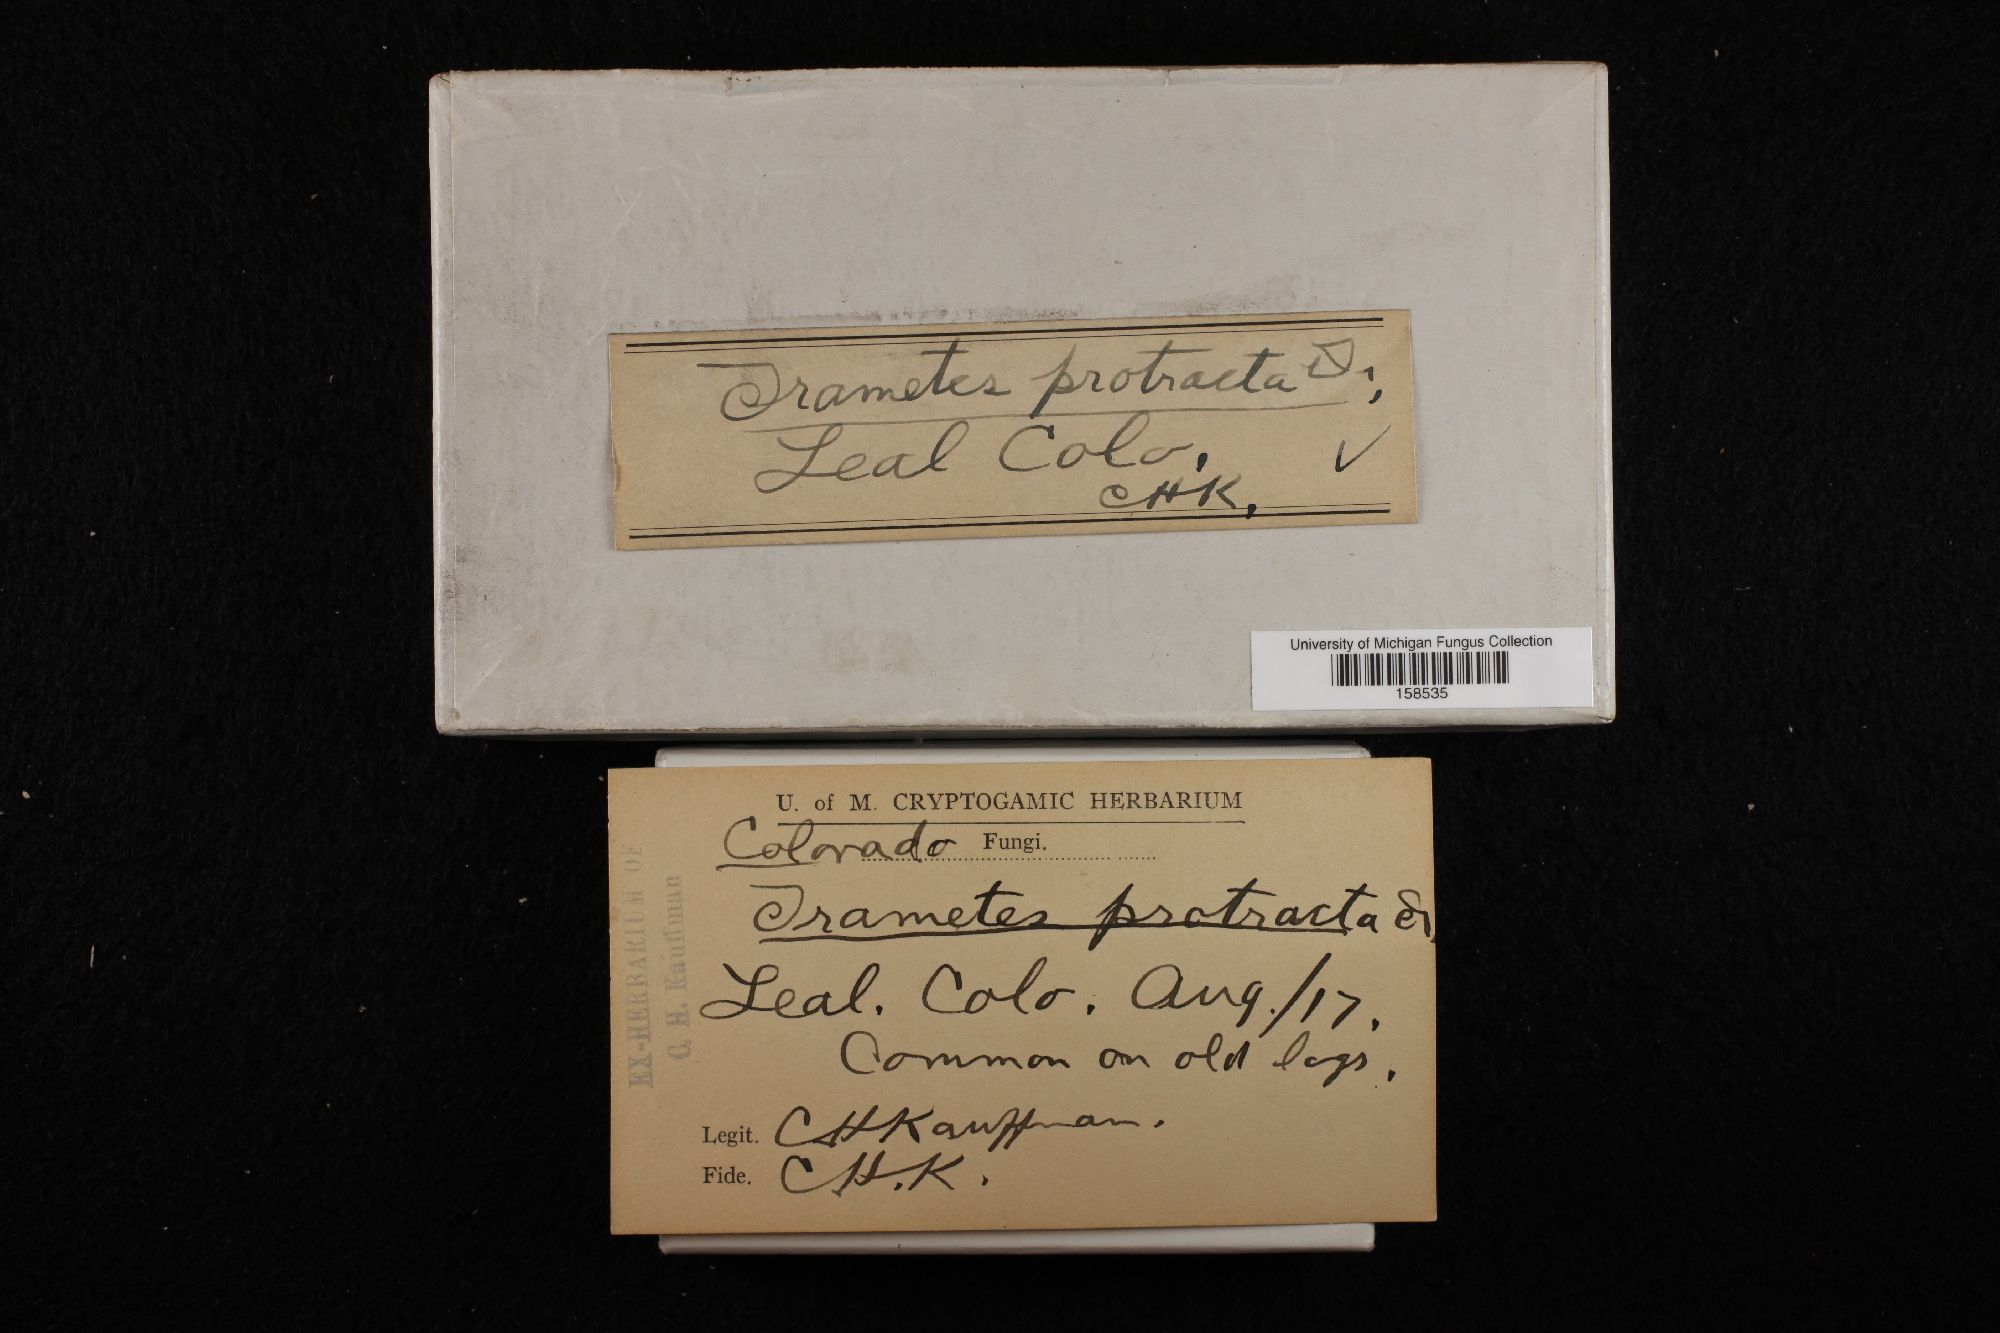 Trametes protracta Fr.,
Leal Colo. ✓
CHK.
University of Michigan Fungus Collection
158535
U. of M. CRYPTOGAMIC HERBARIUM
Colorado Fungi.
Trametes protracta Fr.
Leal. Colo. Aug./17.
Common on old logs.
Legit. CHKauffman.
Fide. CH.K.
EX-HERBARIUM OF
C. H. Kauffman